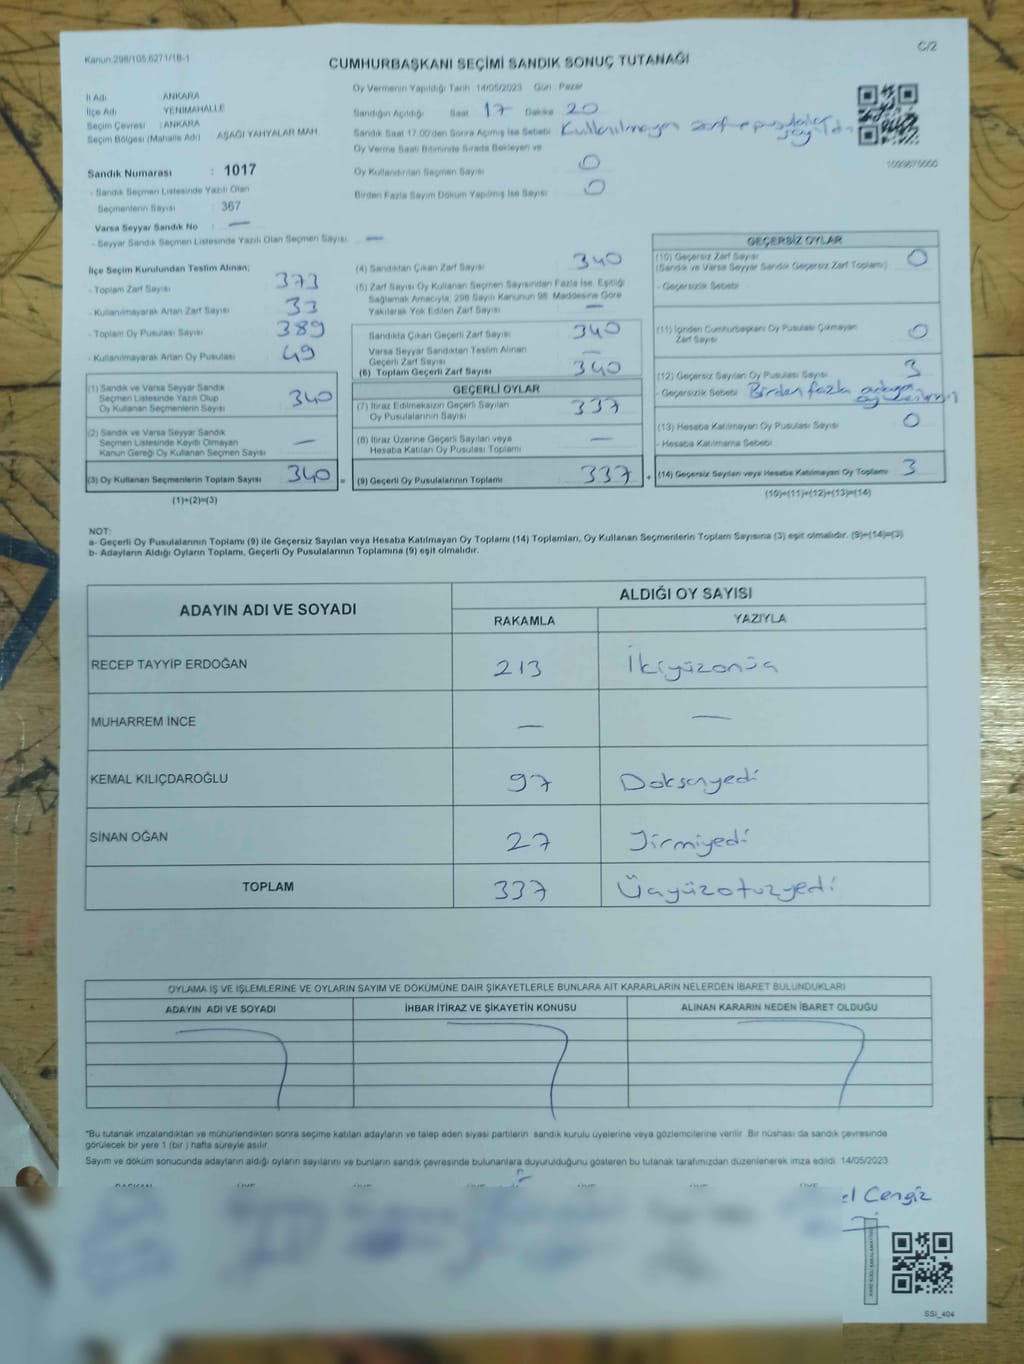 Kanun:298/105,6271/18-1
C/2
CUMHURBAŞKANI SEÇİMİ SANDIK SONUÇ TUTANAĞI
İl Adı ANKARA
İlçe Adı YENİMAHALLE
Seçim Çevresi :ANKARA
Seçim Bölgesi (Mahalle Adı) AŞAĞI YAHYALAR MAH.
Sandık Numarası : 1017
- Sandık Seçmen Listesinde Yazılı Olan
Seçmenlerin Sayısı : 367
Varsa Seyyar Sandık No : —
- Seyyar Sandık Seçmen Listesinde Yazılı Olan Seçmen Sayısı: —
Oy Vermenin Yapıldığı Tarih 14/05/2023 Gün : Pazar
Sandığın Açıldığı Saat 17 Dakika 20
Sandık Saat 17.00'den Sonra Açılmış İse Sebebi Kullanılmayan zarf ve pusulalar sayıldı
Oy Verme Saati Bitiminde Sırada Bekleyen ve
Oy Kullandırılan Seçmen Sayısı 0
Birden Fazla Sayım Döküm Yapılmış İse Sayısı 0
İlçe Seçim Kurulundan Teslim Alınan;
- Toplam Zarf Sayısı 373
- Kullanılmayarak Artan Zarf Sayısı 33
- Toplam Oy Pusulası Sayısı 389
- Kullanılmayarak Artan Oy Pusulası 49
(1) Sandık ve Varsa Seyyar Sandık
Seçmen Listesinde Yazılı Olup
Oy Kullanan Seçmenlerin Sayısı 340
(2) Sandık ve Varsa Seyyar Sandık
Seçmen Listesinde Kayıtlı Olmayan
Kanun Gereği Oy Kullanan Seçmen Sayısı —
(3) Oy Kullanan Seçmenlerin Toplam Sayısı 340 =
(1)+(2)=(3)
(4) Sandıktan Çıkan Zarf Sayısı 340
(5) Zarf Sayısı Oy Kullanan Seçmen Sayısından Fazla İse, Eşitliği
Sağlamak Amacıyla; 298 Sayılı Kanunun 98. Maddesine Göre
Yakılarak Yok Edilen Zarf Sayısı —
Sandıkta Çıkan Geçerli Zarf Sayısı 340
Varsa Seyyar Sandıktan Teslim Alınan
Geçerli Zarf Sayısı —
(6) Toplam Geçerli Zarf Sayısı 340
GEÇERLİ OYLAR
(7) İtiraz Edilmeksizin Geçerli Sayılan
Oy Pusulalarının Sayısı 337
(8) İtiraz Üzerine Geçerli Sayılan veya
Hesaba Katılan Oy Pusulası Toplamı —
(9) Geçerli Oy Pusulalarının Toplamı 337 +
GEÇERSİZ OYLAR
(10) Geçersiz Zarf Sayısı 0
(Sandık ve Varsa Seyyar Sandık Geçersiz Zarf Toplamı)
- Geçersizlik Sebebi
(11) İçinden Cumhurbaşkanı Oy Pusulası Çıkmayan
Zarf Sayısı 0
(12) Geçersiz Sayılan Oy Pusulası Sayısı 3
- Geçersizlik Sebebi Birden fazla adaya
(13) Hesaba Katılmayan Oy Pusulası Sayısı 0
- Hesaba Katılmama Sebebi
(14) Geçersiz Sayılan veya Hesaba Katılmayan Oy Toplamı 3
(10)+(11)+(12)+(13)=(14)
NOT:
a- Geçerli Oy Pusulalarının Toplamı (9) ile Geçersiz Sayılan veya Hesaba Katılmayan Oy Toplamı (14) Toplamları, Oy Kullanan Seçmenlerin Toplam Sayısına (3) eşit olmalıdır. (9)+(14)=(3)
b- Adayların Aldığı Oyların Toplamı, Geçerli Oy Pusulalarının Toplamına (9) eşit olmalıdır.
ADAYIN ADI VE SOYADI
ALDIĞI OY SAYISI
RAKAMLA YAZIYLA
RECEP TAYYİP ERDOĞAN 213 İkiyüzonüç
MUHARREM İNCE — —
KEMAL KILIÇDAROĞLU 97 Doksanyedi
SİNAN OĞAN 27 Yirmiyedi
TOPLAM 337 Üçyüzotuzyedi
OYLAMA İŞ VE İŞLEMLERİNE VE OYLARIN SAYIM VE DÖKÜMÜNE DAİR ŞİKAYETLERLE BUNLARA AİT KARARLARIN NELERDEN İBARET BULUNDUKLARI
ADAYIN ADI VE SOYADI İHBAR İTİRAZ VE ŞİKAYETİN KONUSU ALINAN KARARIN NEDEN İBARET OLDUĞU
*Bu tutanak imzalandıktan ve mühürlendikten sonra seçime katılan adayların ve talep eden siyasi partilerin sandık kurulu üyelerine veya gözlemcilerine verilir. Bir nüshası da sandık çevresinde
görülecek bir yere 1 (bir ) hafta süreyle asılır.
Sayım ve döküm sonucunda adayların aldığı oyların sayılarını ve bunların sandık çevresinde bulunanlara duyurulduğunu gösteren bu tutanak tarafımızdan düzenlenerek imza edildi. 14/05/2023
el Cengiz
SSI_404